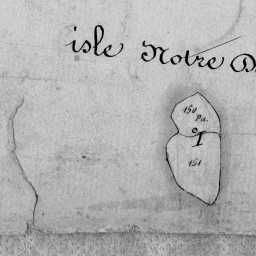 isle Notre D
150
Pa.
I
151